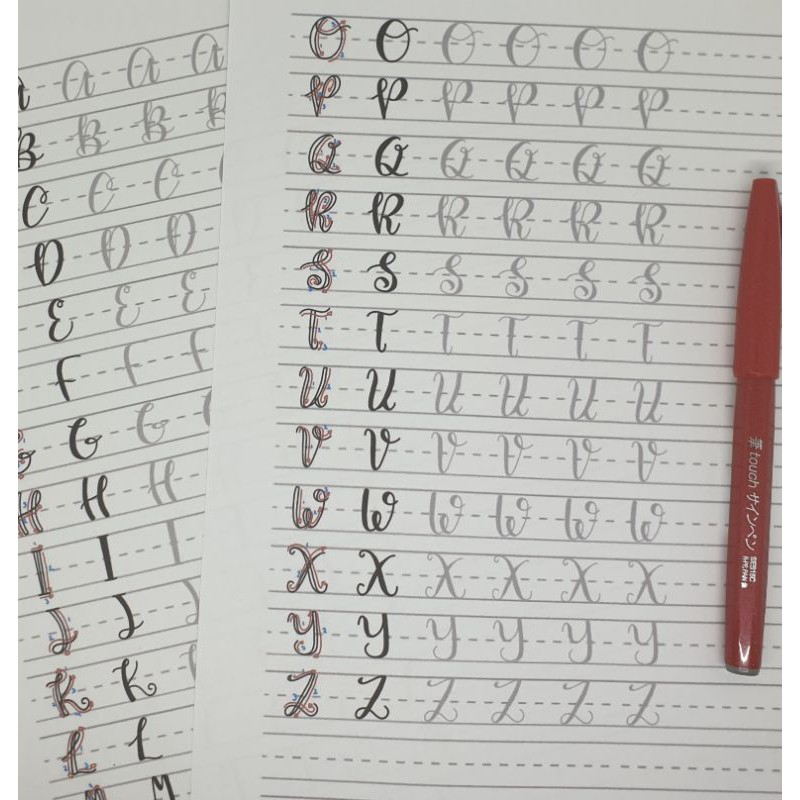 A A A A
B B B B
C C C
D D D
E E E
F F F
G G G
H H H
I I I
J J
K K
L L
M M
O O O O O O
P P P P P P
Q Q Q Q Q Q
R R R R R R
S S S S S S
T T T T T T
U U U U U U
V V V V V V
W W W W W W
X X X X X X
Y Y Y Y Y Y
Z Z Z Z Z Z
筆 touch サインペン
SES15C
JAPAN